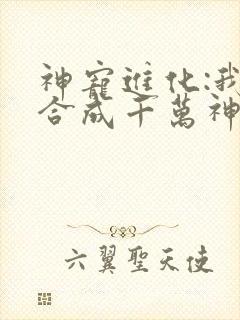 神寵進化:我
合成千萬神
六翼聖天使